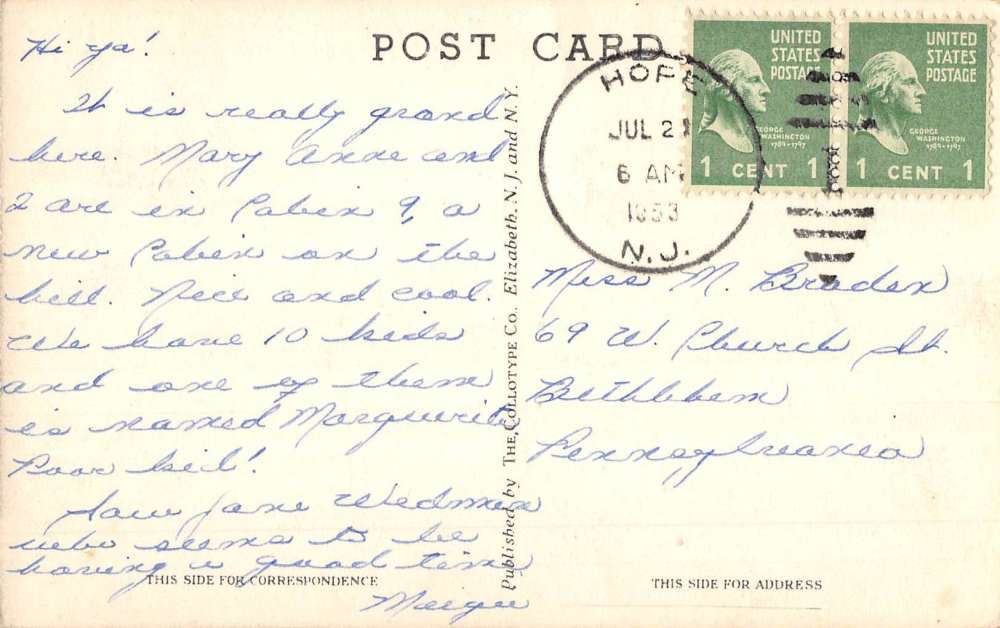 Hi ya!
It is really grand
here. Mary Anne and
I are in Cabin 9, a
new Cabin on the
hill. Nice and cool.
We have 10 kids
and one of them
is named Marguerite
Poor kid!
Saw Jane
who seems to be
having a good time
POST CARD
HOPE
JUL 2
6 AM
1953
N.J.
UNITED
STATES
POSTAGE
GEORGE
WASHINGTON
1789-1797
1 CENT 1
UNITED
STATES
POSTAGE
GEORGE
WASHINGTON
1789-1797
1 CENT 1
Published by THE COLLOTYPE CO. Elizabeth, N.J. and N.Y.
Miss M. Braden
69 W. Church St.
Bethlehem
Pennsylvania
THIS SIDE FOR CORRESPONDENCE
THIS SIDE FOR ADDRESS